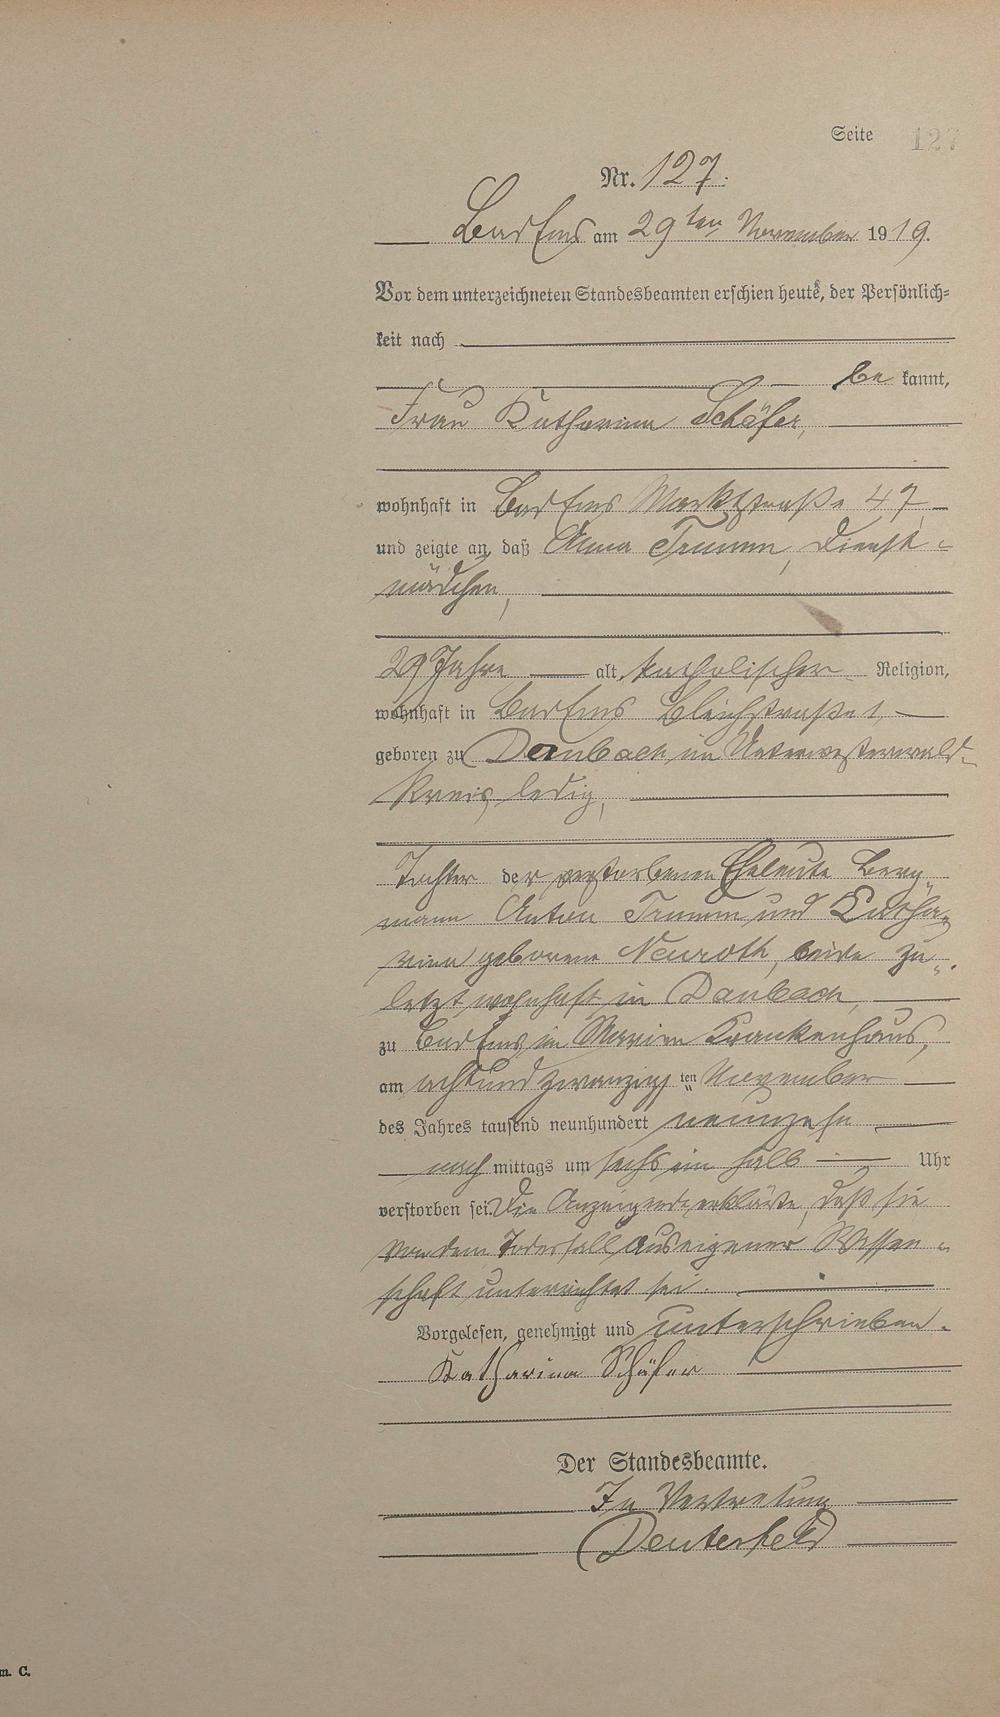 Seite 127
Nr. 127.
Bad Ems am 29ten November 1919.
Vor dem unterzeichneten Standesbeamten erschien heute, der Persönlich-
keit nach
be kannt,
Frau Katharina Schäfer,
wohnhaft in Bad Ems Marktstraße 47
und zeigte an, daß Anna Trumm, Dienst-
mädchen,
29 Jahre alt, katholischer Religion,
wohnhaft in Bad Ems Bleichstraße 1,
geboren zu Daubach im Unterwesterwald-
kreis, ledig,
Tochter der verstorbenen Eheleute Berg
mann Anton Trumm und Katha-
rina geborene Neuroth, beide zu-
letzt wohnhaft in Daubach,
zu Bad Ems, im Marien Krankenhaus,
am achtundzwanzig ten November
des Jahres tausend neunhundert neunzehn
nach mittags um sechs ein halb Uhr
verstorben sei. Die Anzeigende erklärte, daß sie
von dem Todesfall aus eigener Wissen-
schaft unterrichtet sei.
Vorgelesen, genehmigt und unterschrieben.
Katharina Schäfer
Der Standesbeamte.
In Vertretung
m. C.